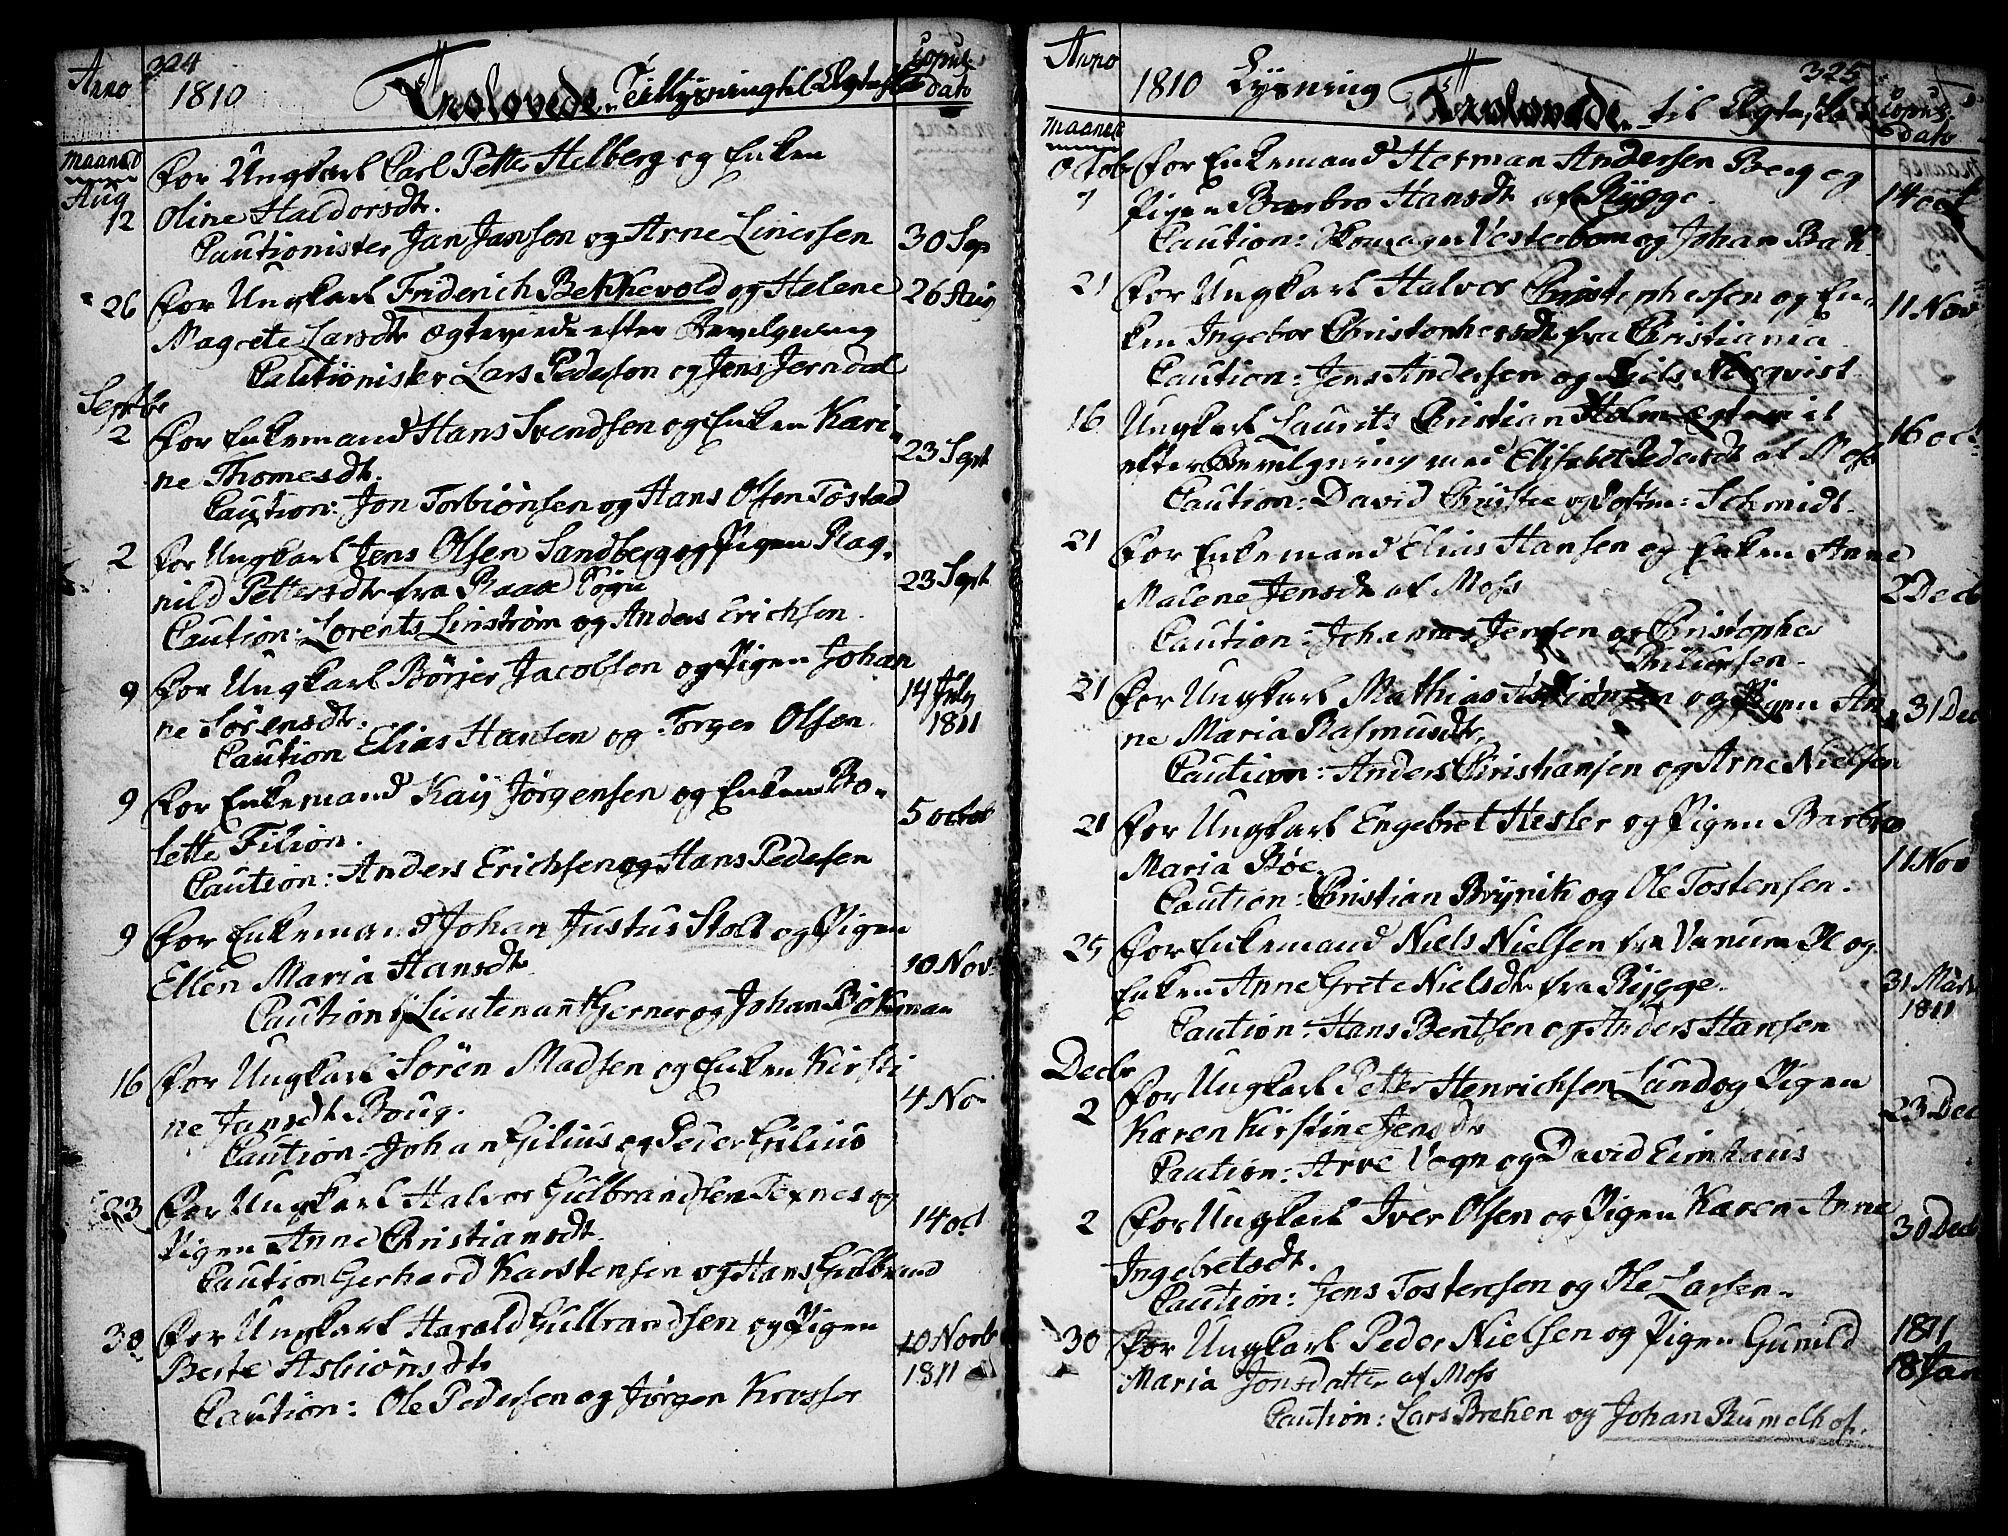 324
Anno 1810 Trolovede Tillysning til Ægteskab Copul. dato
Maaned
Aug
12 for Ungkarl Carl Petter Helberg og Enken
Oline Haldorsdtr.
Cautionister Jan Jansen og Arne Linersen 30 Sep
26 for Ungkarl Friderich Bekkevold og Helene 26 Aug
Magrete Larsdtr ægteviede efter Bevilgning
Cautionister Lars Pedersen og Jens Jerndal
Septbr
2 for Enkemand Hans Svendsen og Enken Kari-
ne Thomesdtr. 23 Sept
Caution: Jon Torbiönsen og Hans Olsen Tostad
2 for Ungkarl Jens Olsen Sandberg og Pigen Rag-
nild Pettersdtr fra Raae Sogn 23 Sept
Caution: Lorents Linstrøm og Anders Erichsen.
9 for Ungkarl Börjer Jacobsen og Pigen Johan
ne Sörensdtr. 14 July 1811
Caution Elias Hansen og Torger Olsen.
9 for Enkemand Kaij Jørgensen og Enken Bo-
lette Filion. 5 octob
Caution: Anders Erichsen og Hans Pedersen
9 for Enkemand Johan Justus Stolt og Pigen
Ellen Maria Hansdtr 10 Nov.
Caution Lieutenant Gerner og Johan Bökman
16 for Ungkarl Sören Madsen og Enken Kirsti
ne Jansdtr Boug. 4 No
Caution Johan Gilius og Peder Gilius
23 for Ungkarl Halvor Gulbrandsen Texnes og
Pigen Anne Christiansdtr. 14 oct
Caution Gerhard Karstensen og Hans Gulbrand
30 for Ungkarl Harald Gulbrandsen og Pigen
Berte Asbiönsdtr 10 Novb 1811
Caution: Ole Pedersen og Jørgen Krosser
325
Anno 1810 Lysning Trolovede til Ægteskab Copul. dato
Maaned
Octob
7 for Enkemand Herman Andersen Berg og
Pigen Barbro Hansdtr af Rygge. 14 oct
Caution: Vesterbom og Johan Bak
21 for Ungkarl Halvor Christophersen og En-
ken Ingebor Christophersdtr fra Christiania 11 Nov
Caution: Jens Andersen og Niels
16 Ungkarl Laurits Christian Holm ægteviet
efter Bevilgning med Elisabet Pedersdtr af Moss 16 oct
Caution: David Chrystie og Schmidt.
21 for Enkemand Elias Hansen og Enken Anne
Malene Jensdtr af Moss 2 Dec
Caution: Johannes Jensen og Christopher

21 for Ungkarl Mathias og Pigen An
ne Maria Rasmusdtr. 31 Dec
Caution: Anders Christiansen og Arne Nielsen
21 for Ungkarl Engebret Hesler og Pigen Barbro
Maria Böe. 11 Nov
Caution: Christian Brynik og Ole Tostensen.
25 for Enkemand Niels Nielsen fra Vanum og
Enken Anne Grete Nielsdtr fra Rygge. 31 Marts 1811
Caution Hans Bentsen og Anders Hansen
Decbr
2 for Ungkarl Petter Henrichsen Lund og Pigen
Karen Kirstine Jensdtr 23 Dec
Caution: Arve Vogn og David Eimhaus
2 for Ungkarl Iver Olsen og Pigen Karen Anne
Ingebretsdtr. 30 Dec
Caution: Jens Tostensen og Ole Larsen.
30 for Ungkarl Peder Nielsen og Pigen Gunild 1811
Maria Jonsdatter af Moss 18 Jan
Caution: Lars Brehen og Johan Rumelhof.